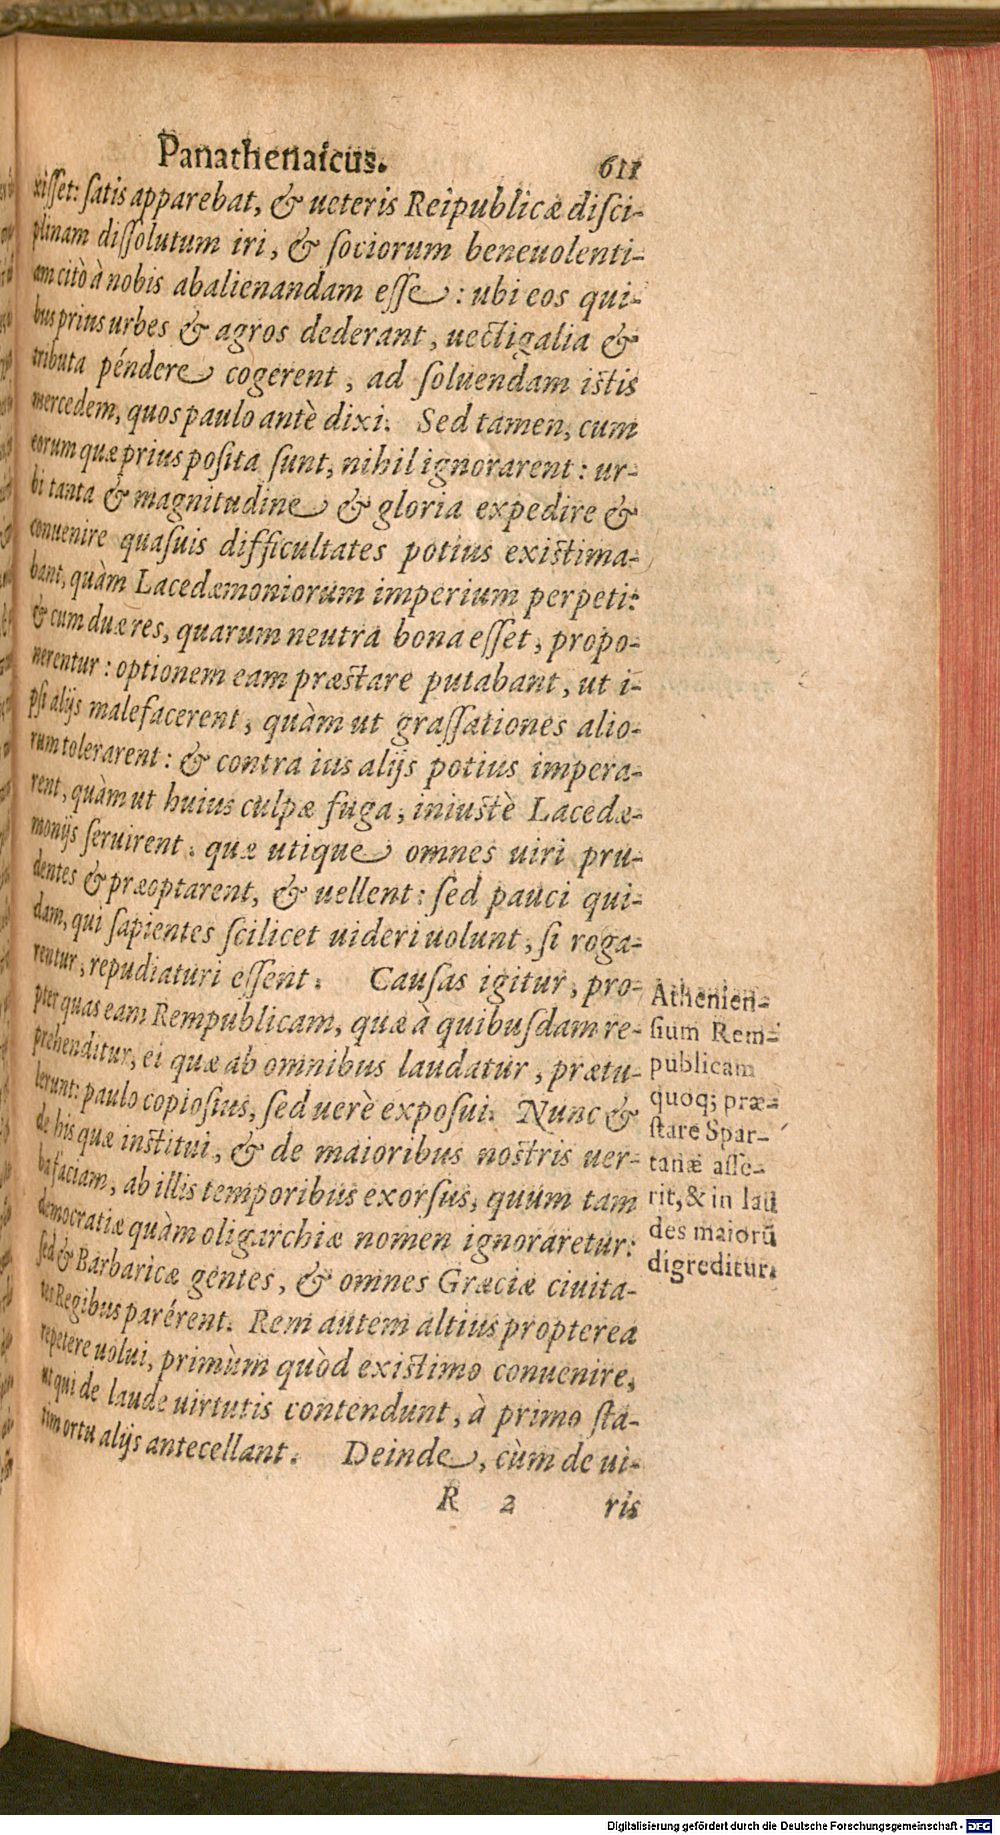 Panathenaicus. 611
xisset: satis apparebat, & ueteris Reipublicæ disci-
plinam dissolutum iri, & sociorum beneuolenti-
am citò à nobis abalienandam esse: ubi eos qui-
bus prius urbes & agros dederant, uectigalia &
tributa péndere cogerent, ad soluendam istis
mercedem, quos paulo antè dixi. Sed tamen, cum
eorum quæ prius posita sunt, nihil ignorarent: ur-
bi tanta & magnitudine & gloria expedire &
conuenire quasuis difficultates potius existima-
bant, quàm Lacedæmoniorum imperium perpeti:
& cum duæ res, quarum neutra bona esset, propo-
nerentur: optionem eam præstare putabant, ut i-
psi alijs malefacerent, quàm ut grassationes alio-
rum tolerarent: & contra ius alijs potius impera-
rent, quàm ut huius culpæ fuga, iniustè Lacedæ-
monijs seruirent. quæ utique omnes uiri pru-
dentes & præoptarent, & uellent: sed pauci qui-
dam, qui sapientes scilicet uideri uolunt, si roga-
rentur, repudiaturi essent. Causas igitur, pro-
pter quas eam Rempublicam, quæ à quibusdam re-
prehenditur, ei quæ ab omnibus laudatur, prætu-
lerunt: paulo copiosius, sed uerè exposui. Nunc &
de his quæ institui, & de maioribus nostris uer-
ba faciam, ab illis temporibus exorsus, quum tam
democratiæ quàm oligarchiæ nomen ignoraretur:
sed & Barbaricæ gentes, & omnes Græciæ ciuita-
tes Regibus parérent. Rem autem altius propterea
repetere uolui, primùm quòd existimo conuenire,
ut qui de laude uirtutis contendunt, à primo sta-
tim ortu alijs antecellant. Deinde, cùm de ui-
R 2 ris
Athenien-
sium Rem-
publicam
quoq; præ-
stare Spar-
tanæ asse-
rit, & in lau
des maiorū
digreditur.
Digitalisierung gefördert durch die Deutsche Forschungsgemeinschaft - DFG